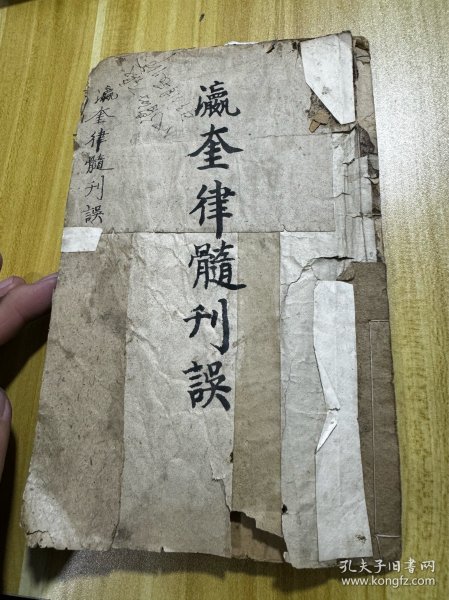 瀛奎律髓刊誤
瀛奎律髓刊誤
孔夫子旧书网
www.kongfz.com